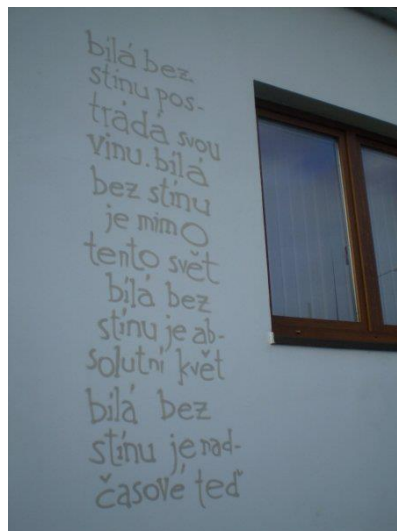 bílá bez
stínu pos-
trádá svou
vinu. bílá
bez stínu
je mimo
tento svět
bílá bez
stínu je ab-
solutní květ
bílá bez
stínu je nad-
časové teď